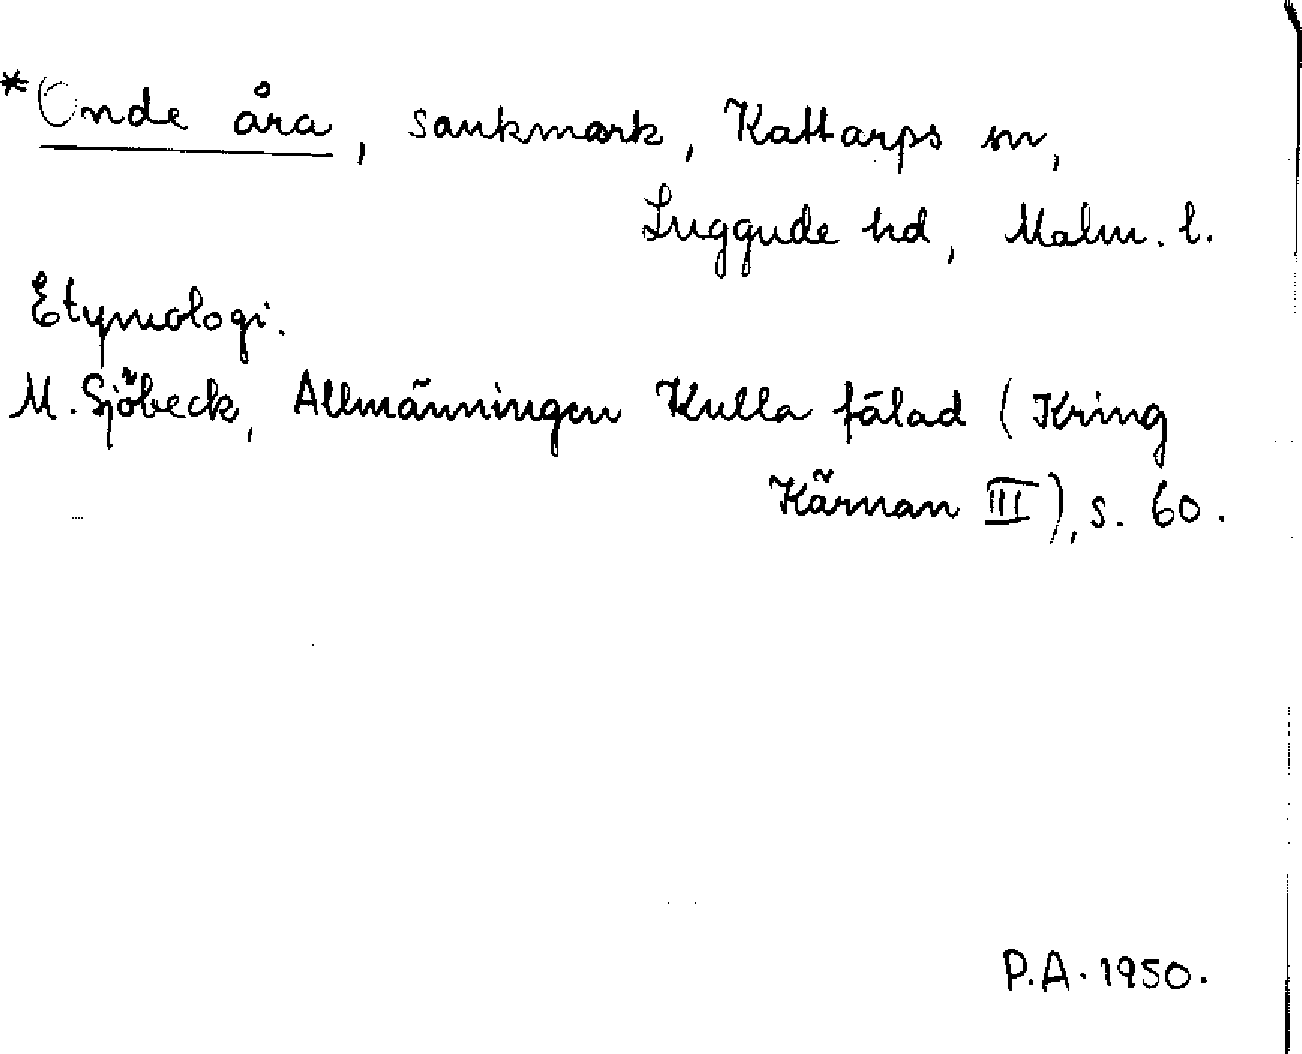 *Onde åra, sankmark, Kattarps sn,
Luggude hd, Malm. l.
Etymologi.
M. Sjöbeck, Allmänningen Kulla fälad (Kring
Kärnan III), s. 60.
P.A. 1950.